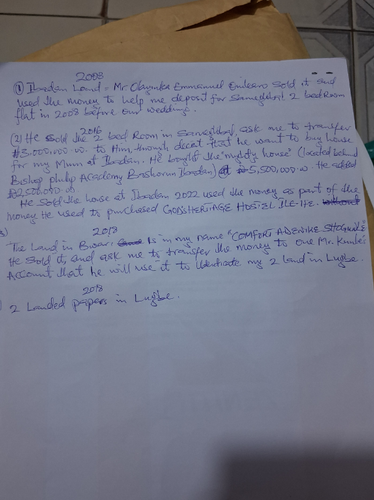 2008
(1) Ibadan Land = Mr Olayinka Emmanuel sold it and
used the money to help me deposit for 2 bedRoom
flat in 2008 before our wedding.
2016
(2) He sold the 2 bed Room in ask me to transfer
₦3,000,000.00 to Him through deceit that he want to buy house
for my Mum at Ibadan. He bought the "mighty house" (located behind
Bishop Philip Academy Bashorun Ibadan) at 5,500,000.00. He added
₦2,500,000.00
He sold the house at Ibadan 2022 used the money as part of the
money He used to purchased GODSHERITAGE HOSTEL ILE-IFE.
2018
The Land in Bwari is in my name "COMFORT ADENIKE
He sold it and ask me to transfer the money to one Mr. Kunle
Account that he will use it to my 2 land in Lugbe.
2018
2 Landed papers in Lugbe.